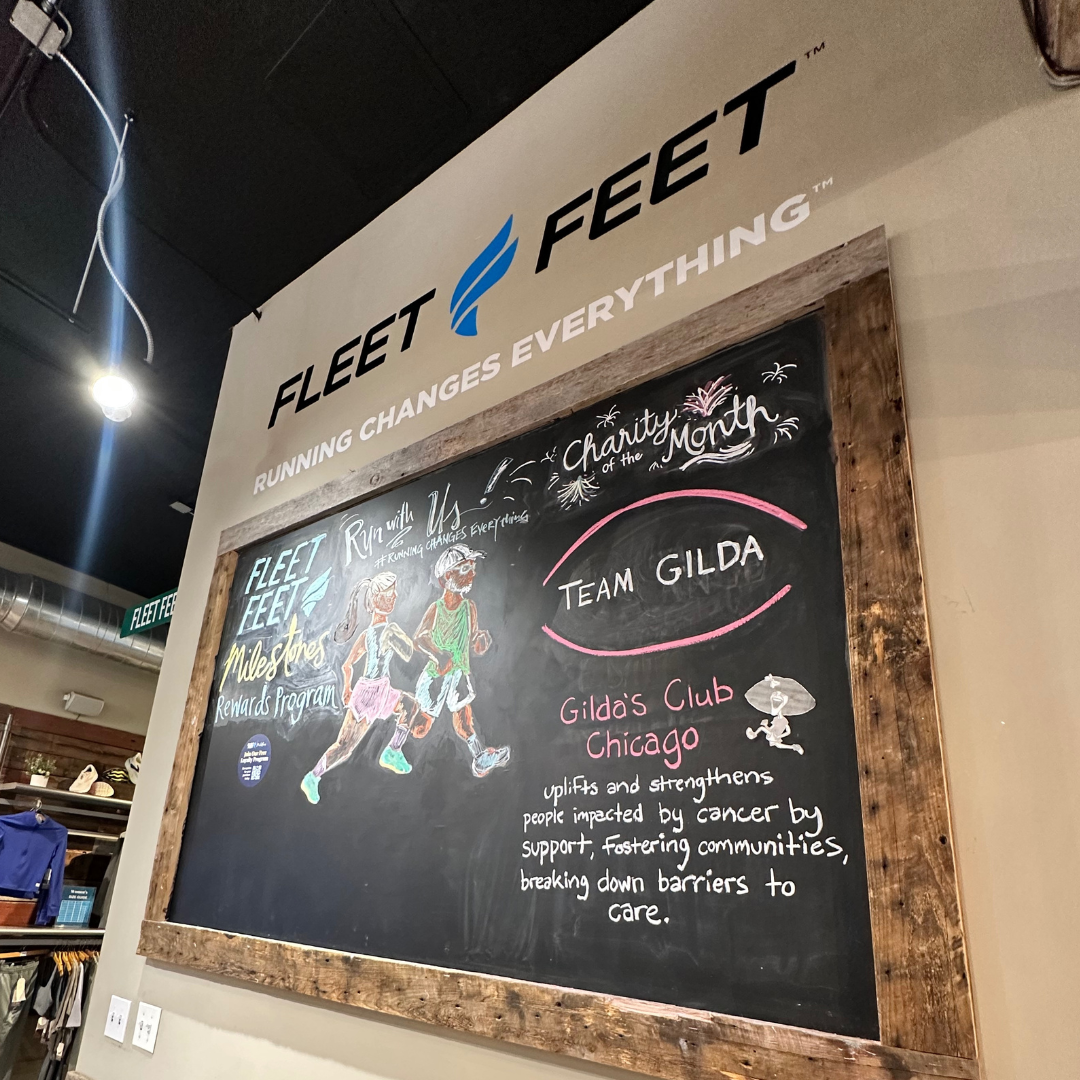 FLEET FEET™
RUNNING CHANGES EVERYTHING™
FLEET
FEET
Milestones
Rewards Program
Join Our Free
Loyalty Program
Run with Us!
#RUNNING CHANGES EVERYthing
Charity
of the Month
TEAM GILDA
Gilda's Club
Chicago
uplifts and strengthens
people impacted by cancer by
support, fostering communities,
breaking down barriers to
care.
FLEET FEE